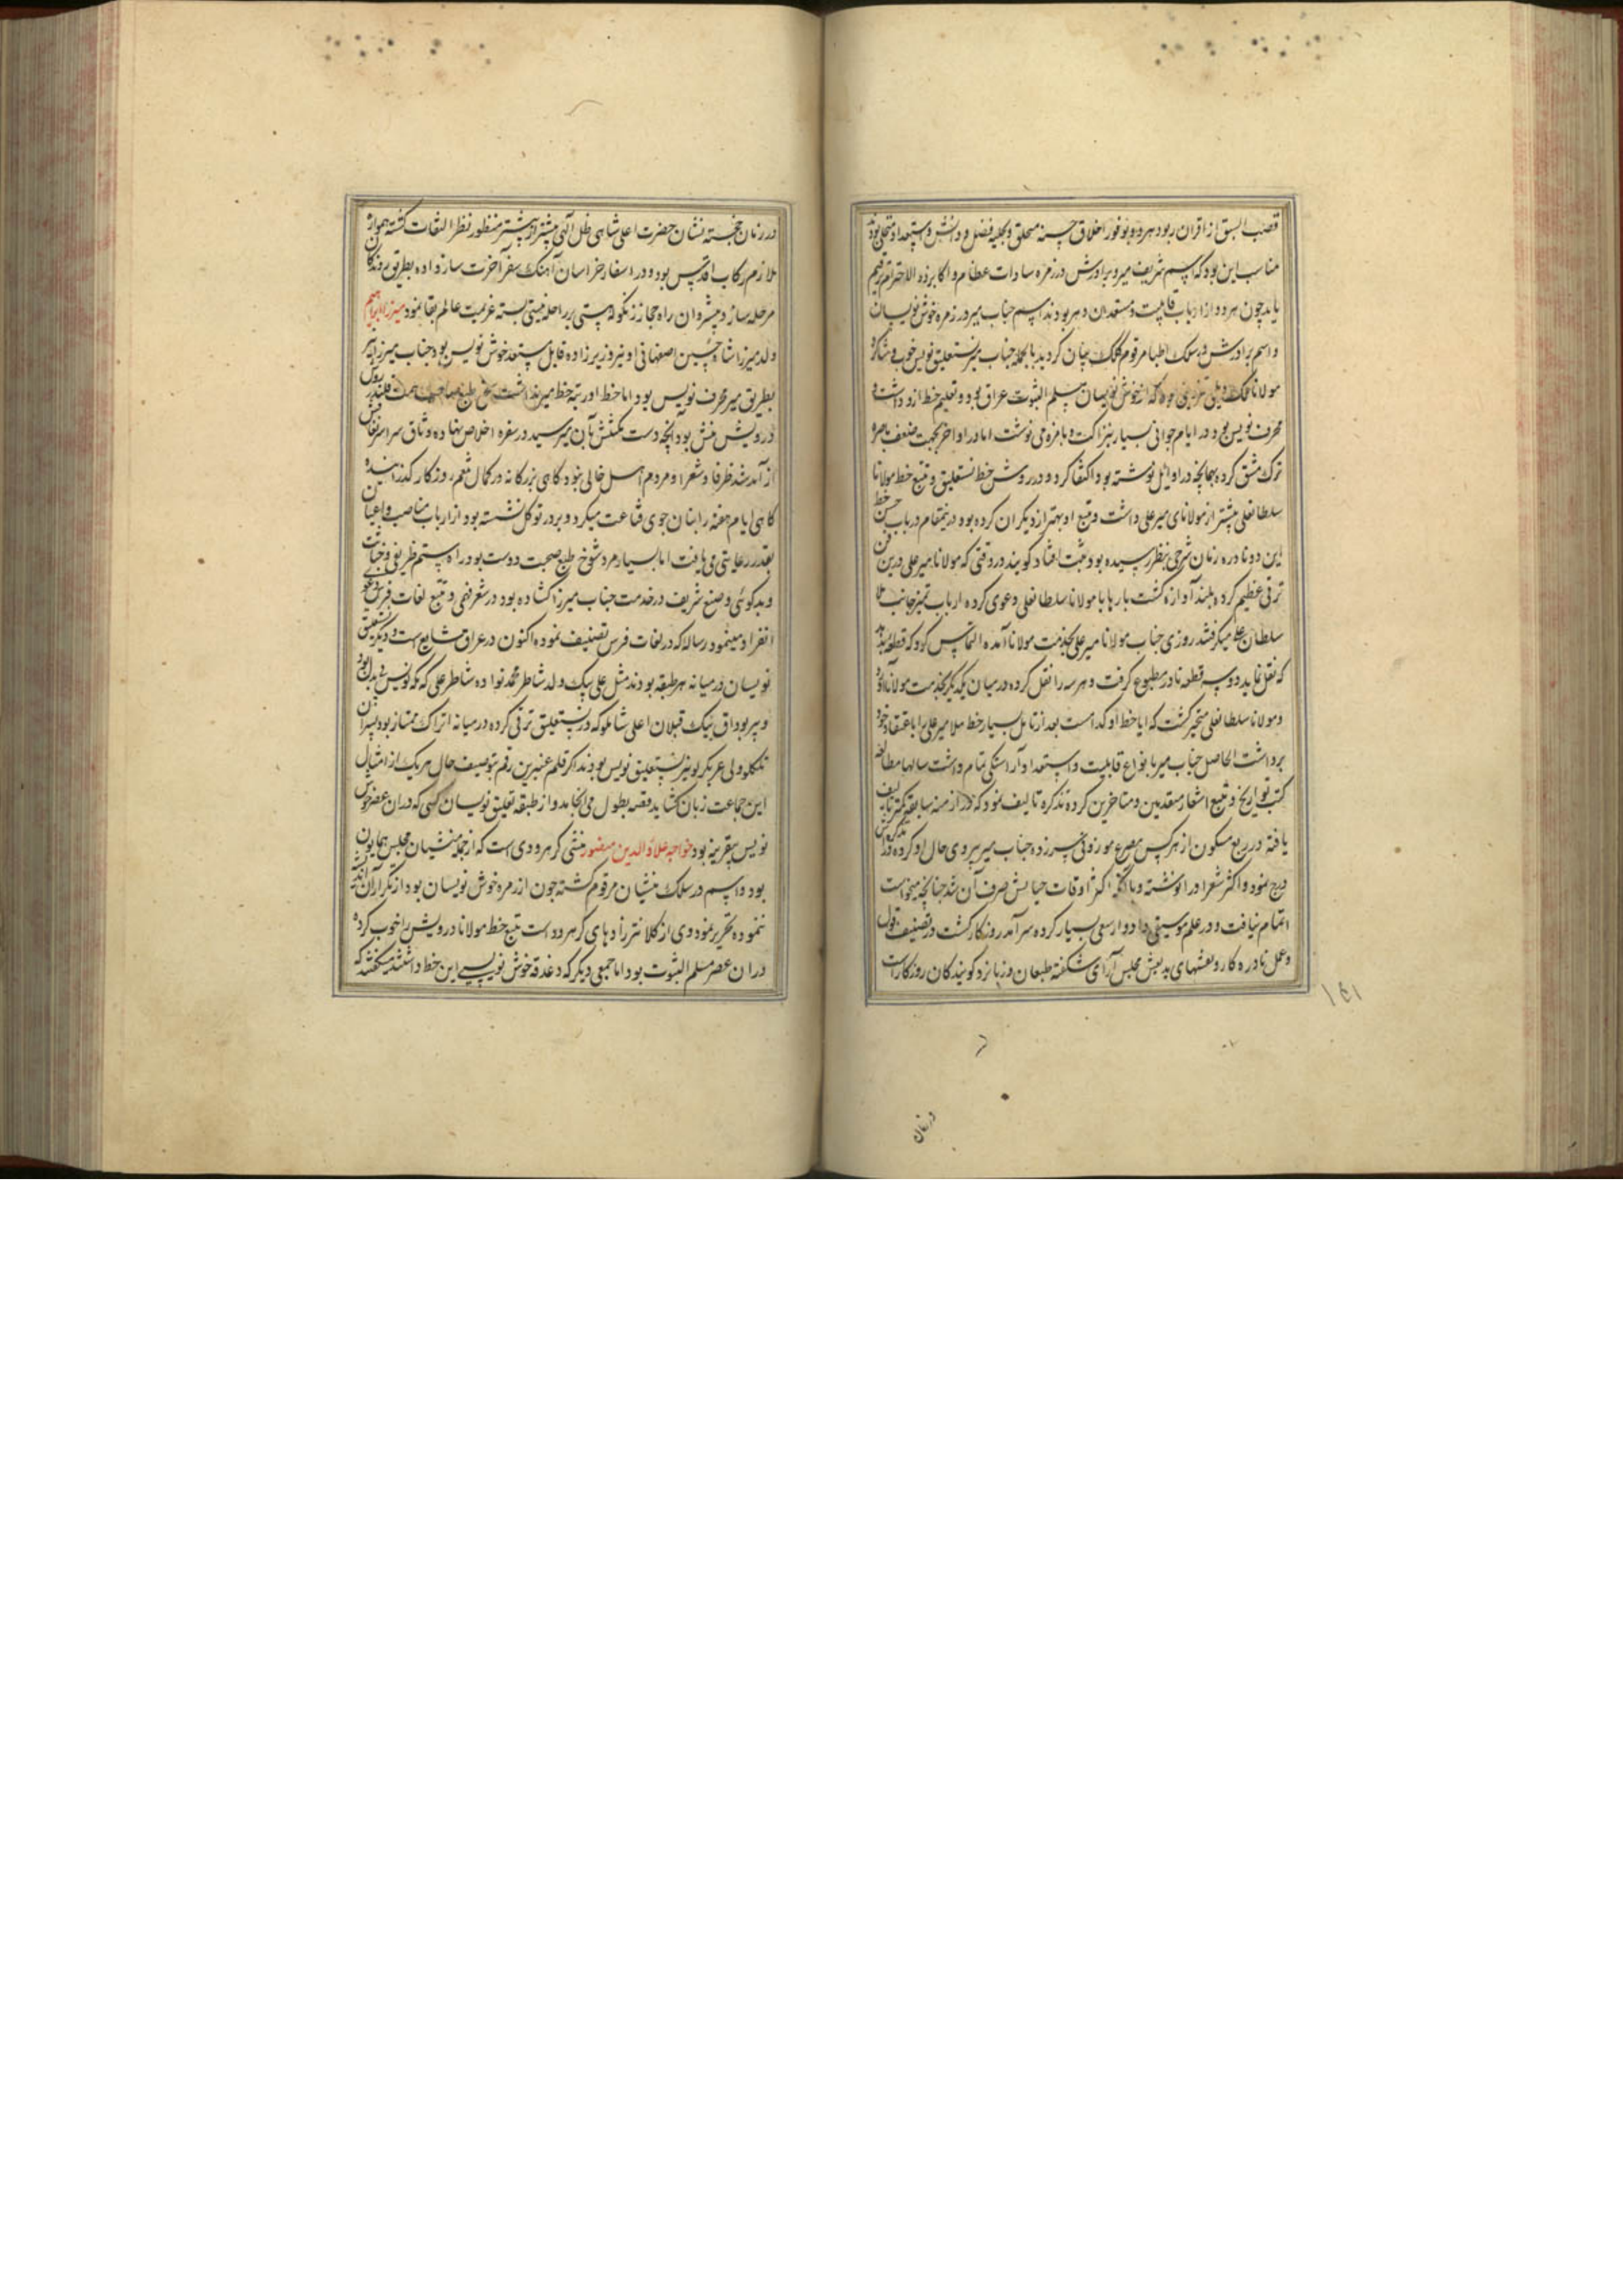 قصب السبق از اقران ربود هر دو بوفور اخلاق حسنه متخلق و بحلیه فضل و دانش و استعداد متحلی بودند
مناسب این بود که اسم شریف میر و برادرش در زمره سادات عظام و اکابر ذو الاحترام ترقیم
یابد چون هر دو از ارباب قابلیت و مستعدان دهر بودند اسم جناب میر در زمره خوش نویسان
و اسم برادرش در سلک اطبا مرقوم کلک بیان گردید بالجمله جناب میر نستعلیق نویس خوب و شاکرد
مولانا ملک دیلمی قزوینی بود که از خوش نویسان مسلم الثبوت عراق بود و تعلیم خط ازو داشت و
محرف نویس بود در ایام جوانی بسیار بنزاکت و بامزه می نوشت اما در اواخر بجهت ضعف باصره
ترک مشق کرده بهمانچه در اوایل نوشته بود اکتفا کرد و در روش خط نستعلیق و تتبع خط مولانا
سلطانعلی بیشتر از مولانای میر علی داشت و تتبع او بهتر از دیکران کرده بود درینمقام در باب حسن خط
این دو نادره زمان شرحی بنظر رسیده بود ثبت افتاد کویند در وقتی که مولانا میر علی درین فن
ترقی عظیم کرده بلند آوازه کشت بارها با مولانا سلطانعلی دعوی کرده ارباب تمیز جانب ملا
سلطان علی میکرفتند روزی جناب مولانا میر علی بخدمت مولانا آمده التماس کرد که قطعه بدهید
که نقل نماید دو سه قطعه نادر مطبوع کرفت و هر سه را نقل کرده در میان یکدیکر بخدمت مولانا آورد
و مولانا سلطانعلی متحیر کشت که ایا خط او کدام است بعد از تامل بسیار خط ملا میر علی را باعتقاد خود
برداشت الحاصل جناب میر بانواع قابلیت و استعداد آراستکی تمام داشت سالها مطالعه
کتب تواریخ و تتبع اشعار متقدمین و متاخرین کرده تذکره تالیف نمود که در ازمنه سابقه کمتر تالیف
یافته در ربع مسکون از هر کس مصرع موزونی سرزده جناب میر پیروی حال او کرده در تذکره اش
درج نمود و اکثر شعر او را نوشته و اکثر اوقات حیاتش صرف آن شد چنانچه میخواست
اتمام نیافت و در علم موسیقی و ادوار سعی بسیار کرده سرآمد روزکار کشت در تصنیف قول
و عمل نادره کار و نقشهای بدیعش مجلس آرای شکفته طبعان و زبانزد کویندکان روزکار است
در زمان
در زمان خجسته نشان حضرت اعلی شاهی ظل الهی بیشتر از پیشتر منظور نظر التفات کشته همواره
ملازم رکاب اقدس بود و در اسفار خراسان آهنک سفر آخرت ساز داده بطریق روندکان
مرحله ساز و پیشروان راه حجاز زنکوله هستی بر راحله نیستی بسته عزیمت عالم بقا نمود میرزا ابراهیم
ولد میرزا شاه حسین اصفهانی او نیز وزیرزاده قابل مستعد خوش نویس بود جناب میرزا نیز
بطریق میر محرف نویس بود اما خط او رتبه خط میر نداشت قلندر روش
درویش منش بود آنچه دست مکنتش بآن میرسید در سفره اخلاص نهاده وثاق
از آمد شد ظرفا و شعرا و مردم اهل خالی نبود کاهی بزرکانه در کمال تنعم روزکار کذرانیده
کاهی ایام هفته را بنان جوی قناعت میکرد و بر در توکل نشسته بود از ارباب مناصب و اعیان
بقدر رعایتی می یافت اما بسیار مرد شوخ طبع صحبت دوست بود راه ستم ظریفی و خباثت
و بدکوئی وضیع و شریف در خدمت جناب میرزا کشاده بود در شعر فهمی و تتبع لغات فرس دعوی
انفراد مینمود رساله که در لغات فرس تصنیف نموده اکنون در عراق شایع است و دیکر نستعلیق
نویسان در میانه هر طبقه بودند مثل علی بیک ولد شاطر محمد نواده شاطر علی که
و پیر بوداق بیک قبلان اعلی شاملو که در نستعلیق ترقی کرده در میانه اتراک ممتاز بود
تکلو ولی عربکرلو نیز نستعلیق نویس بودند اکر قلم عنبرین رقم بتوصیف حال هر یک از امثال
این جماعت زبان کشاید قصه بطول می انجامد و از طبقه تعلیق نویسان کسی که در آن عصر خوش
نویس بود خواجه علاء الدین منصور منشی کرهرودی است که از جمله منشیان مجلس همایون
بود و اسم در سلک منشیان مرقوم کشته چون از زمره خوش نویسان بود از تکرار آن
ننموده تحریر نمود وی از کلانترزادهای کرهرود است تتبع خط مولانا درویش را خوب کرده
در ان عصر مسلم الثبوت بود اما جمعی دیکر که دغدغه خوش نویسی این خط داشتند میکفتند که